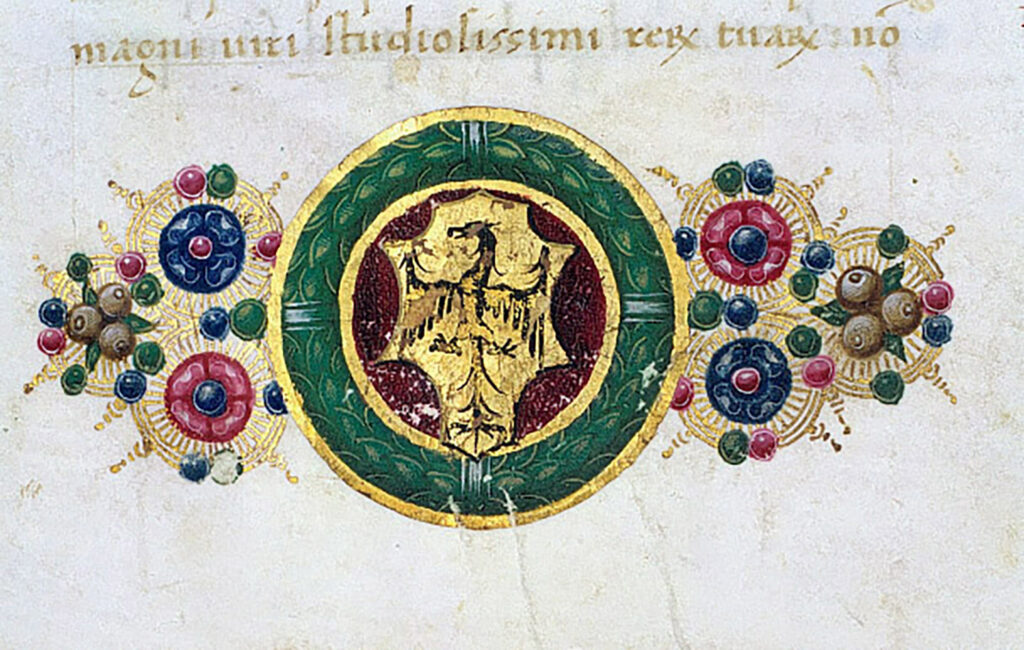 magni uiri studiosissimi reꝝ tuaꝝ no